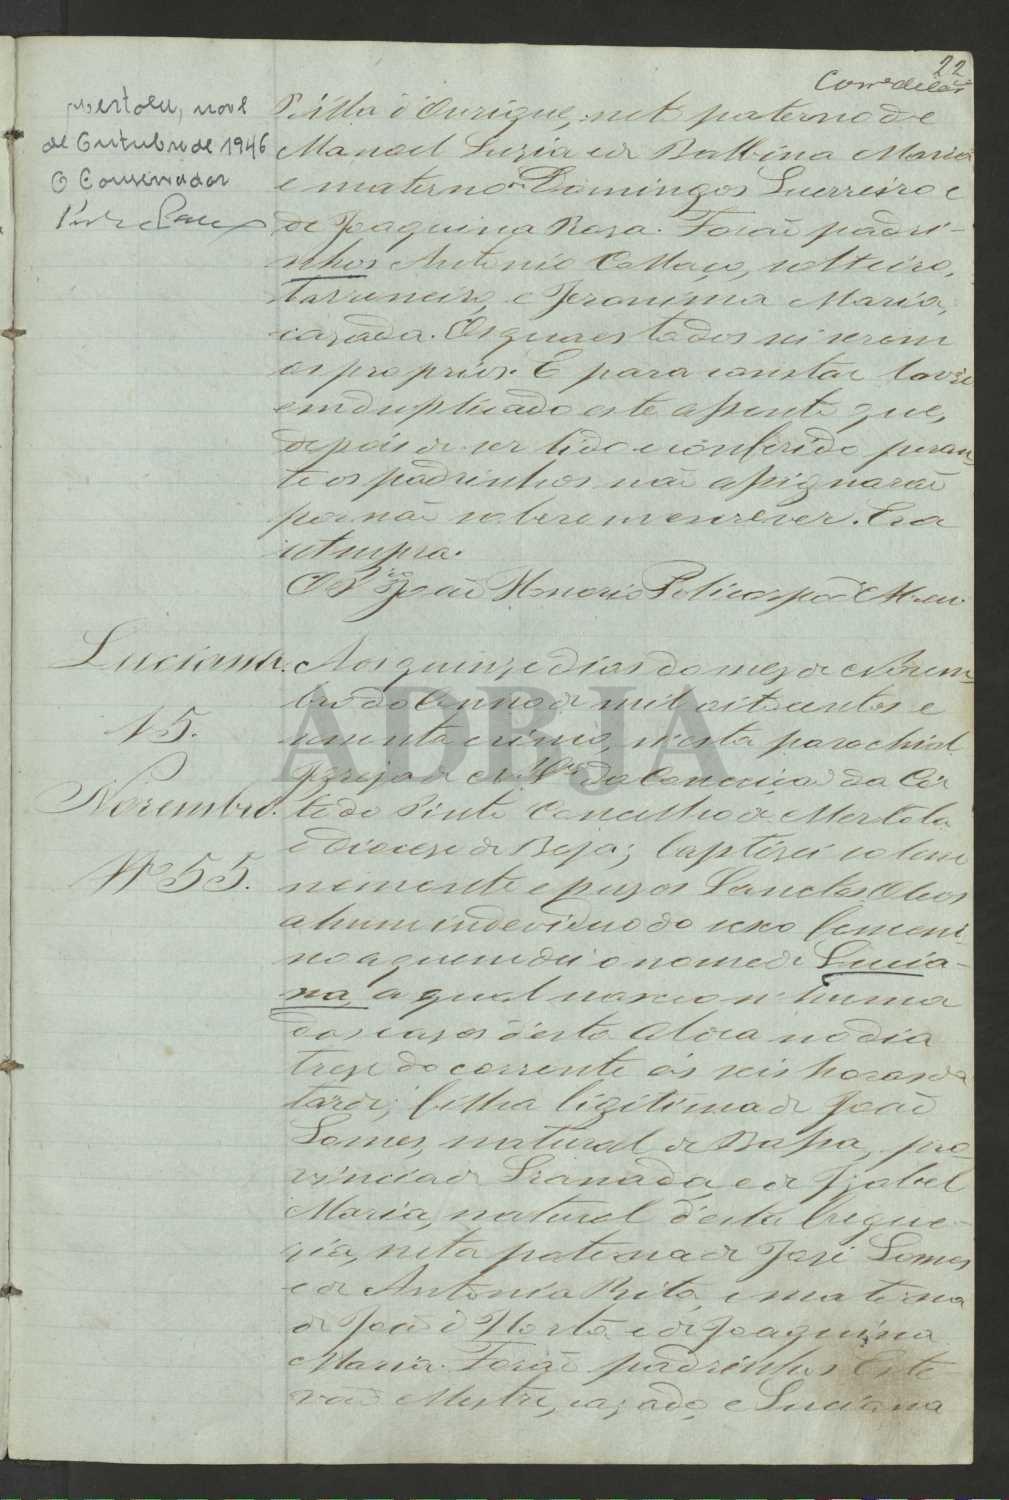 22
Mertola, nove
de Outubro de 1946
O Conservador
Villa d'Ourique, net paterno de
Manoel Luzia e de Balbina Maria
e materno de Domingos Guerreiro e
de Joaquina Roza. Forão padri-
nhos Antonio Collaço, solteiro,
e Jeronima Maria,
cazada. Os quaes todos sei serem
os proprios. E para constar lavrei
em duplicado este assento que,
depois de ser lido e conferido peran-
te os padrinhos não assignarão
por não saberem escrever. Era
ut supra.
O P.e João Honorio Policarpo
Luciana. Aos quinze dias do mez de Novem-
bro do anno de mil oitocentos e
15. , n'esta parochial
Igreja de N. Sra da Conceição da Cor-
Novembro. te do Pinto Concelho de Mertola
e Diocese de Beja; baptisei solem-
Nº 55. nemente e puz os Sanctos Oleos
a hum individuo do sexo femeni-
no a quem dei o nome de Lucia-
na, a qual nasceo n'huma
das cazas d'esta Aldea no dia
treze do corrente ás seis horas da
tarde; filha ligitima de João
Gomes, natural de Bassa, pro-
vincia de Granada, e de Izabel
Maria, natural d'esta fregue-
zia, neta paterna de José Gomes
e de Antonia Rita, e materna
de João d'Horta e de Joaquina
Maria. Forão padrinhos Este-
vão Mestre, cazado, e Luciana
ADBJA